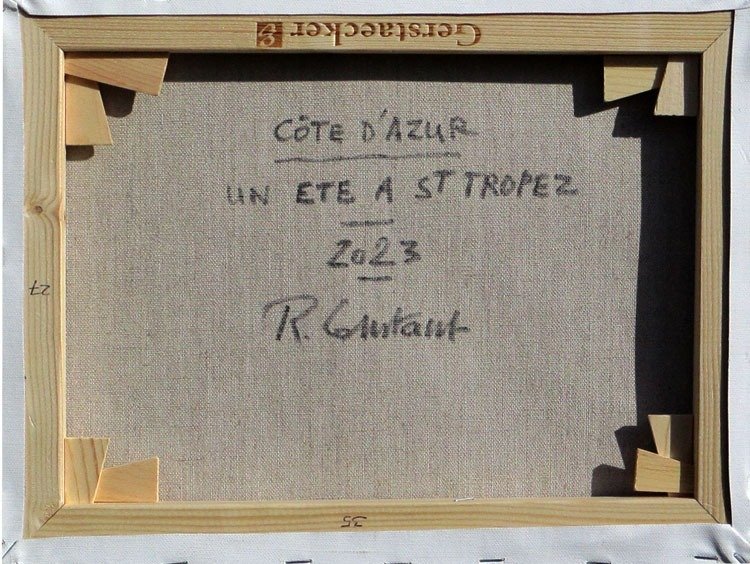 Gerstaecker
CÔTE D'AZUR
UN ETE A ST TROPEZ
2023
27
R.
35